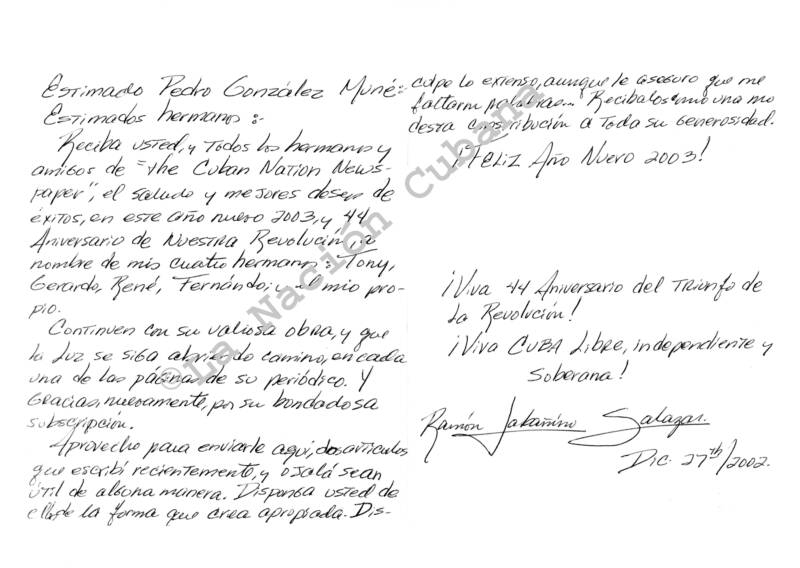 Estimado Pedro González Muné:-
Estimados hermanos:-
Reciba usted, y todos los hermanos y
amigos de "The Cuban Nation News-
paper", el saludo y mejores deseos de
éxitos, en este año nuevo 2003, y 44
Aniversario de Nuestra Revolución, a
nombre de mis cuatro hermanos: Tony,
Gerardo, René, Fernándo; y el mio pro-
pio.
Continuen con su valiosa obra, y que
la Luz se siga abriendo camino, en cada
una de las páginas de su periódico. Y
Gracias, nuevamente, por su bondadosa
subscripción.
Aprovecho para enviarle aquí, dos artículos
que escribí recientemente, y ojalá sean
útil de alguna manera. Disponga usted de
ellos de la forma que crea apropiada. Dis-
culpe lo extenso, aunque le aseguro que me
faltarn palabras... Recibalos como una mo
desta contribución a toda su generosidad.
¡Feliz Año Nuevo 2003!
¡Viva 44 Aniversario del Triunfo de
La Revolución!
¡Viva CUBA Libre, independiente y
Soberana!
Ramón Labañino Salazar.
Dic. 27th/2002.
©La Nación Cubana